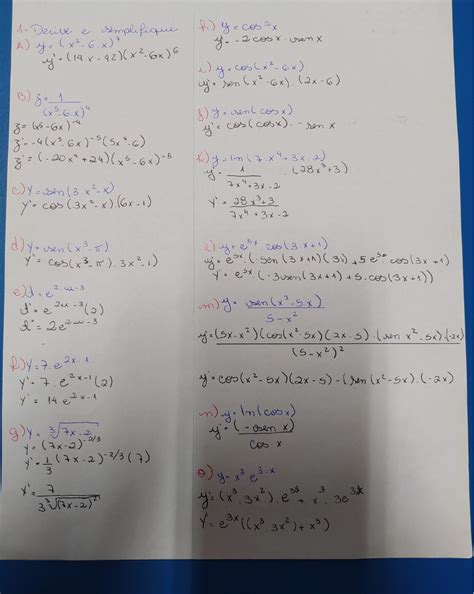 1- Derive e simplifique
A) y = (x² - 6·x)⁷
y' = (14x - 42)(x² - 6x)⁶
B) z = 1/(x⁵ - 6·x)⁴
z = (x⁵ - 6x)⁻⁴
z' = -4(x⁵ - 6x)⁻⁵(5x⁴ - 6)
z' = (-20x⁴ + 24)(x⁵ - 6x)⁻⁵
c) Y = sen(3·x² - x)
Y' = cos(3x² - x)(6x - 1)
d) Y = sen(x³ - π)
Y' = cos(x³ - π)·3x² - 1)
e) d = e^(2·u-3)
d' = e^(2u-3)(2)
d' = 2e^(2u-3)
f) Y = 7·e^(2x-1)
Y' = 7·e^(2x-1)(2)
Y' = 14e^(2x-1)
g) Y = ³√(7x-2)
Y = (7x-2)^(-2/3)
Y' = 1/3 (7x-2)^(-2/3) (7)
Y' = 7/(3 ³√(7x-2)²)
h) y = cos²x
y = -2cosx · senx
i) y = cos(x² - 6x)
y = sen(x² - 6x)·(2x - 6)
j) y = sen(cosx)
y' = cos(cosx)· - senx
k) y = ln(7·x⁴ + 3x - 2)
y = 1/(7x⁴ + 3x - 2) · (28x³ + 3)
Y' = (28x³ + 3)/(7x⁴ + 3x - 2)
l) y = e^(5x)·cos(3·x + 1)
y = e^(5x)·(-sen(3x+1)(3)) + 5e^(5x)·cos(3x+1)
Y = e^(5x)·(-3sen(3x+1) + 5·cos(3x+1))
m) y = sen(x² - 5x)/(5 - x²)
y' = (5x - x²)(cos(x² - 5x)(2x - 5) - (sen x² - 5x)(-2x)/(5 - x²)²
y' = cos(x² - 5x)(2x - 5) - (sen(x² - 5x)·(-2x)
n) y = ln(cosx)
y' = (-senx)/cosx
o) y = x³·e^(3·x)
y' = (x³·3x²)·e^(3x) + x³·3e^(3x)
Y' = e^(3x)((x³·3x²) + x³)